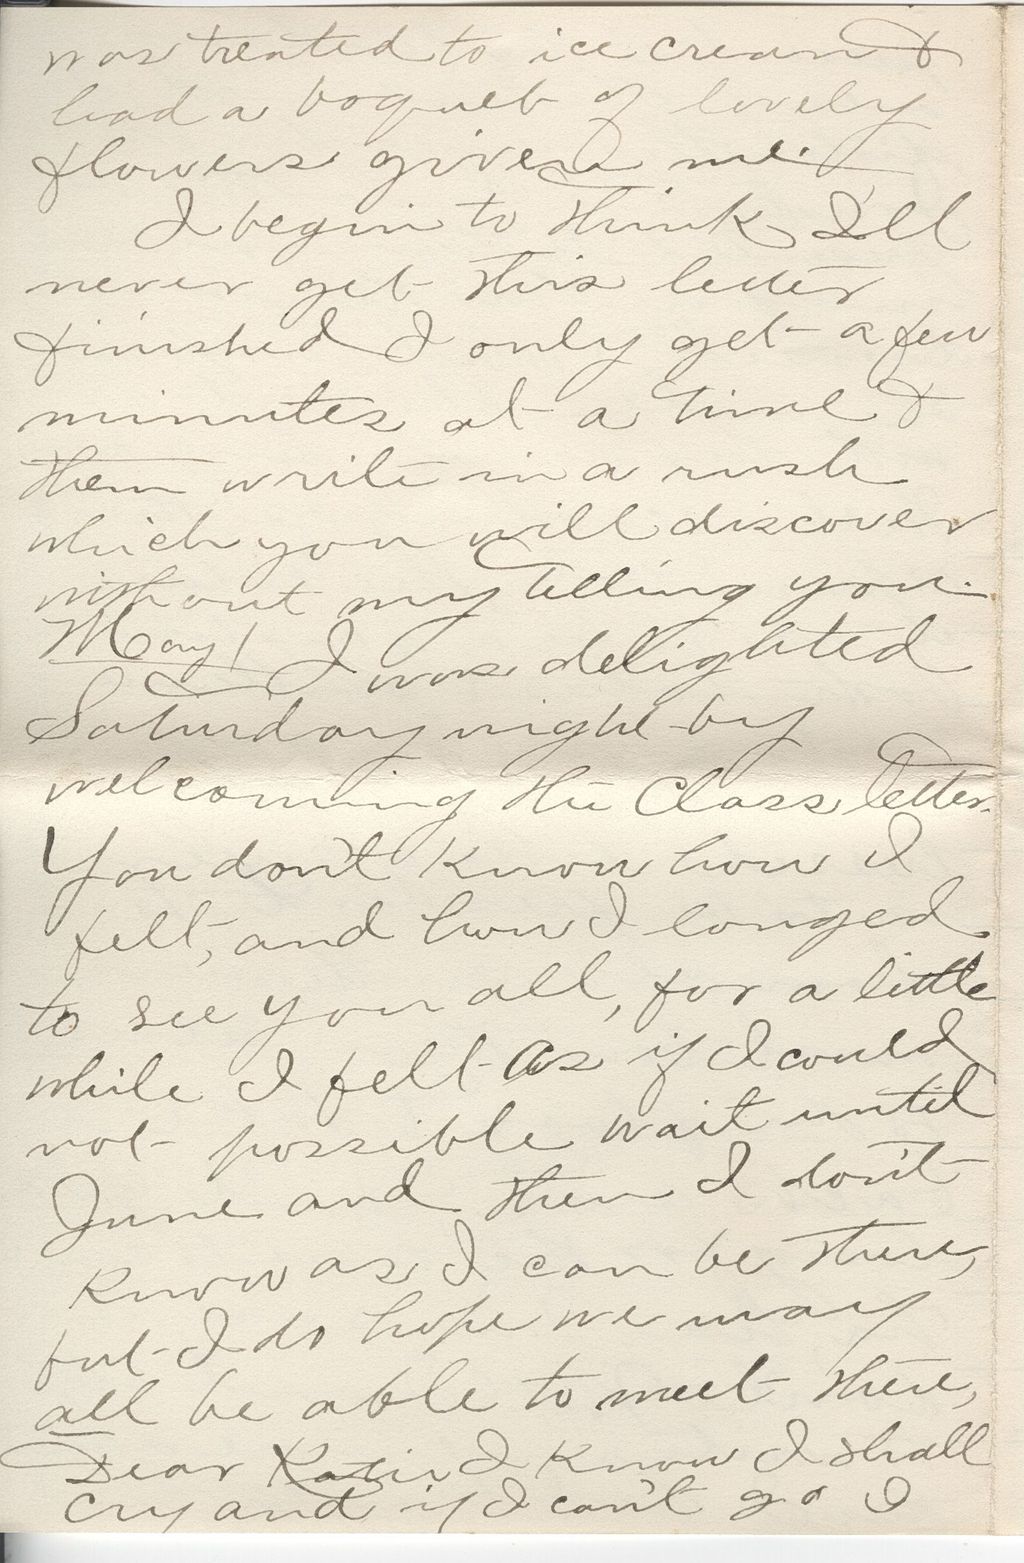 was treated to ice cream &
had a boquet of lovely
flowers given me.
I begin to think I'll
never get this letter
finished I only get a few
minutes at a time &
them write in a rush
which you will discover
without my telling you.
May 1 I was delighted
Saturday night by
welcoming the Class letter.
You don't know how I
felt, and how I longed
to see you all, for a little
while I felt as if I could
not possible wait until
June and then I don't
know as I can be there,
but I do hope we may
all be able to meet there,
Dear Katie I know I shall
cry and if I can't go I